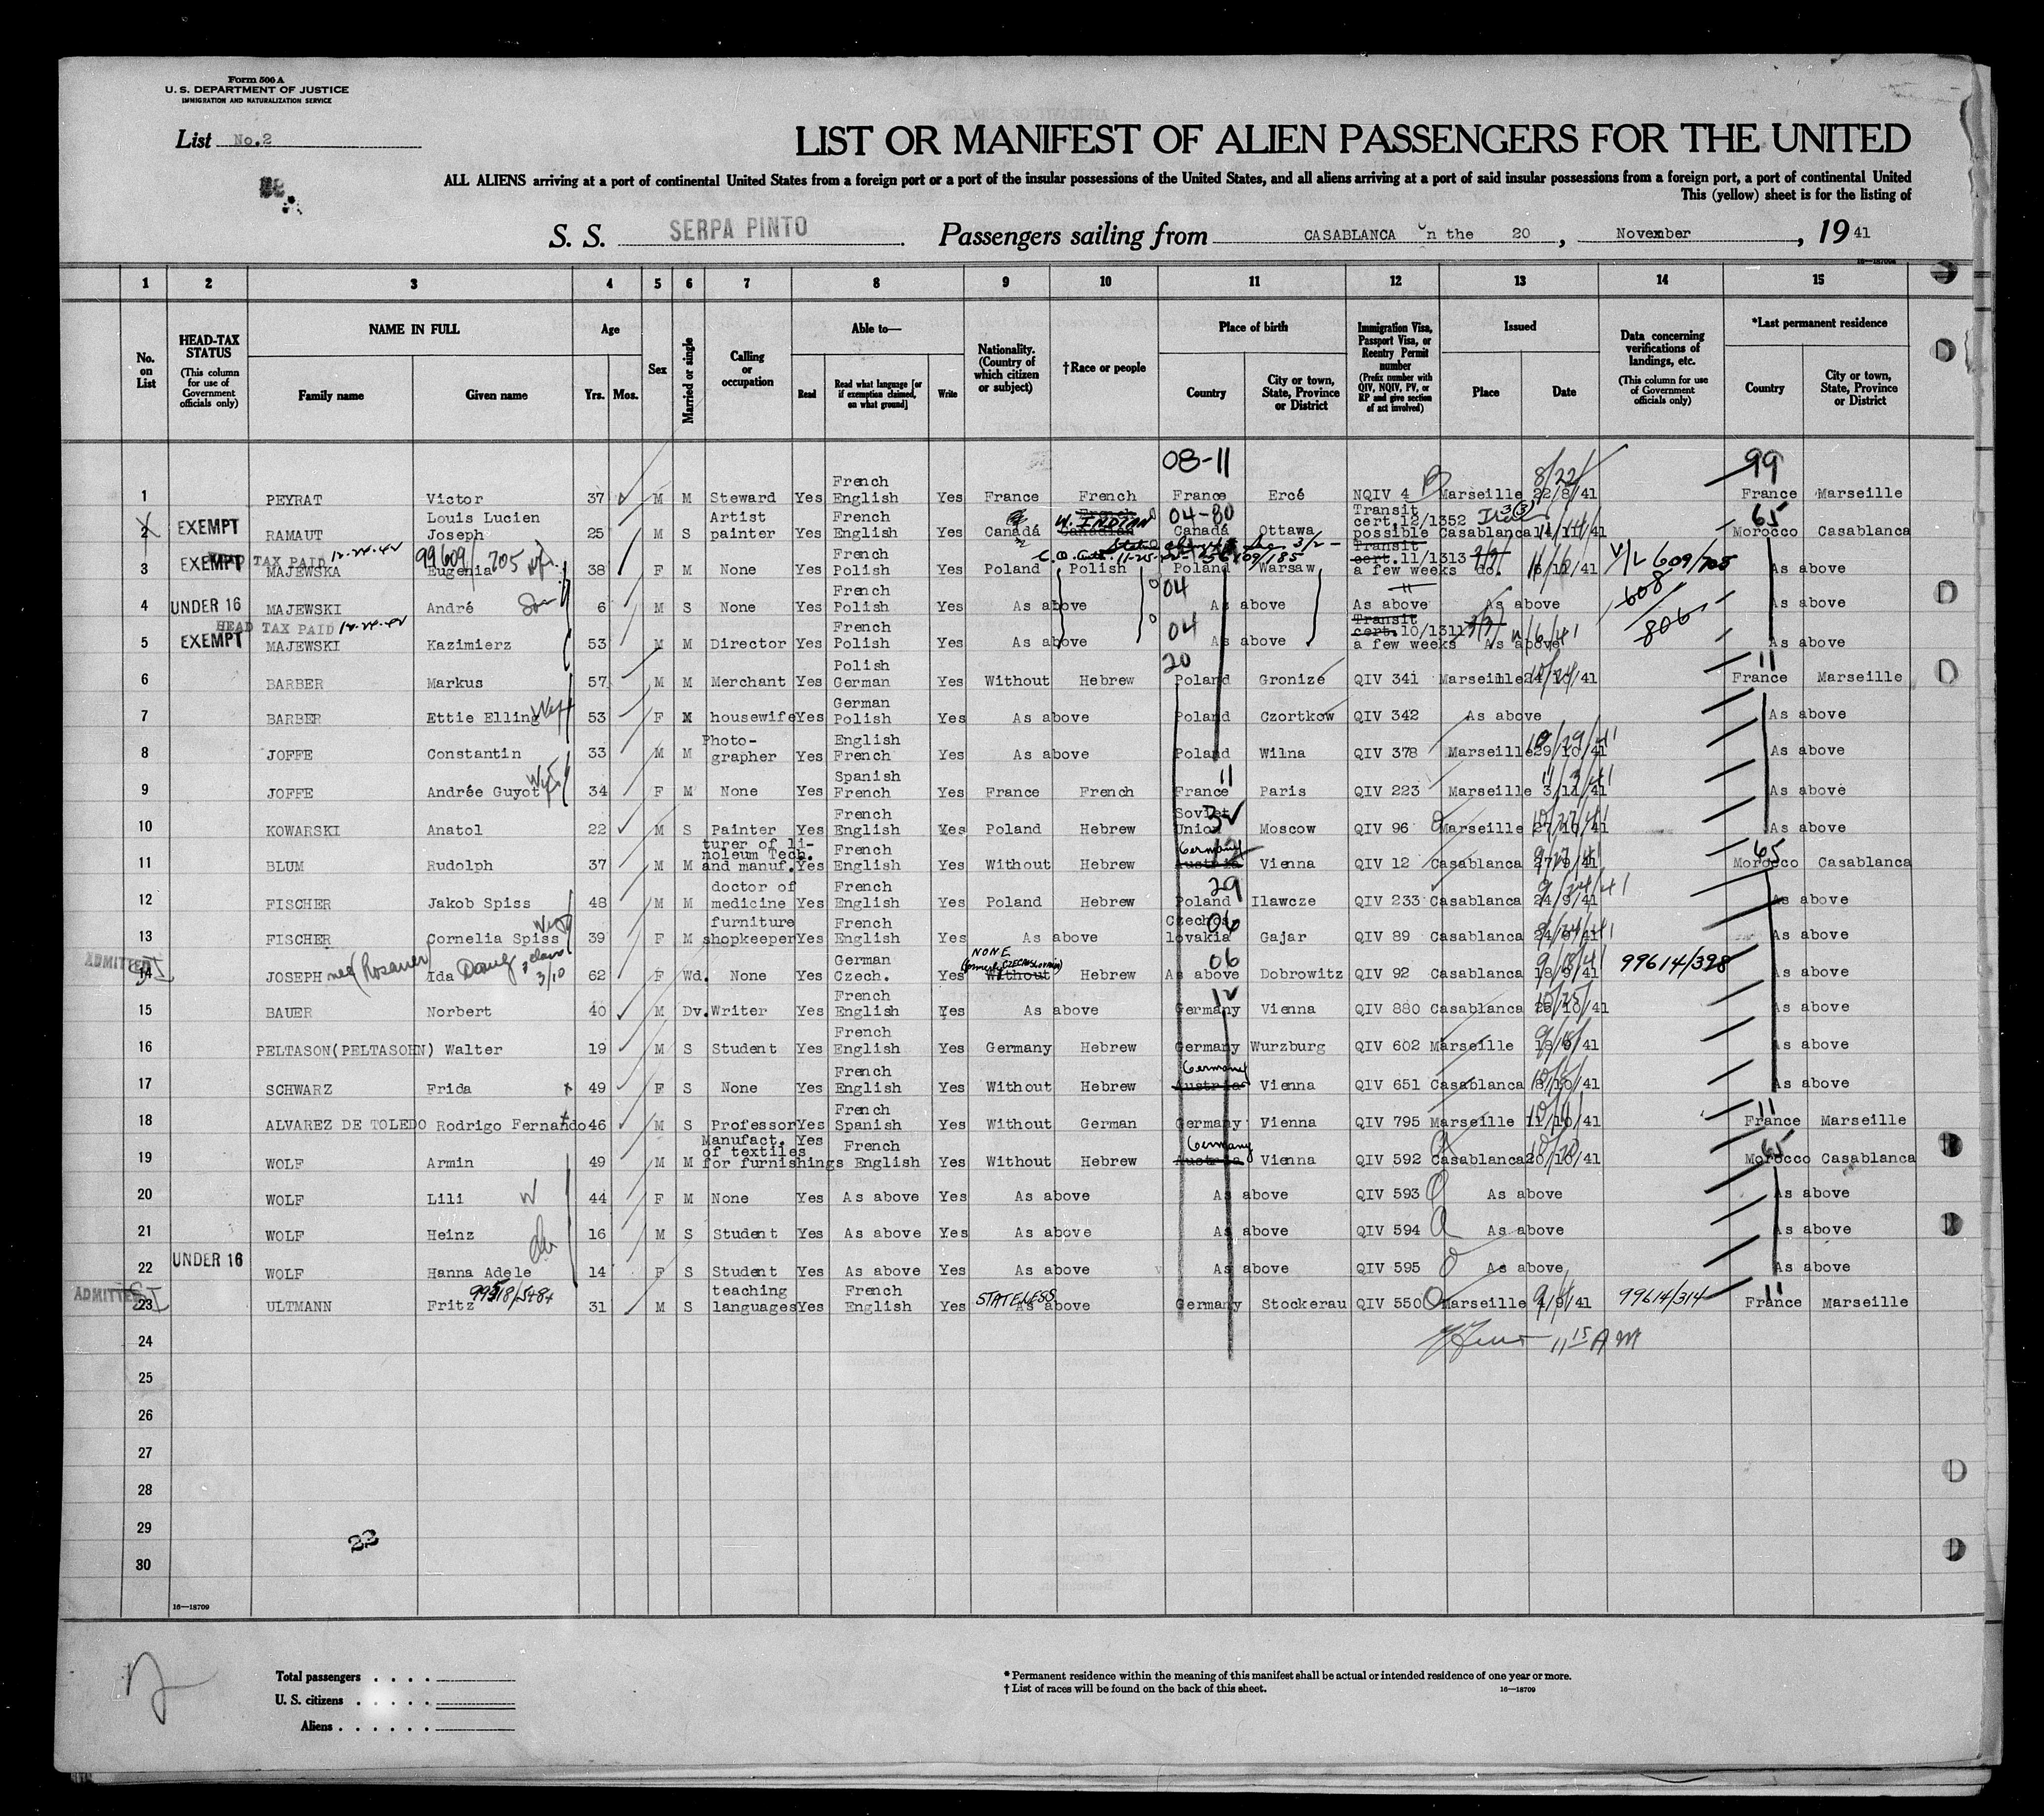 Form 500 A
U. S. DEPARTMENT OF JUSTICE
IMMIGRATION AND NATURALIZATION SERVICE
List No.2
LIST OR MANIFEST OF ALIEN PASSENGERS FOR THE UNITED
ALL ALIENS arriving at a port of continental United States from a foreign port or a port of the insular possessions of the United States, and all aliens arriving at a port of said insular possessions from a foreign port, a port of continental United
This (yellow) sheet is for the listing of
S. S. SERPA PINTO. Passengers sailing from CASABLANCA on the 20, November, 19 41
16—18709
1 2 3 4 5 6 7 8 9 10 11 12 13 14 15
No. on List
HEAD-TAX STATUS (This column for use of Government officials only)
NAME IN FULL Family name Given name
Age Yrs. Mos.
Sex
Married or single
Calling or occupation
Able to— Read Read what language [or if exemption claimed, on what ground] Write
Nationality. (Country of which citizen or subject)
†Race or people
Place of birth Country City or town, State, Province or District
Immigration Visa, Passport Visa, or Reentry Permit number (Prefix number with QIV, NQIV, PV, or RP and give section of act involved)
Issued Place Date
Data concerning verifications of landings, etc. (This column for use of Government officials only)
*Last permanent residence Country City or town, State, Province or District
08-11 8/22/ 99
1 PEYRAT Victor 37 M M Steward Yes French English Yes France French France Ercé NQIV 4 Marseille 22/8/41 France Marseille
2 EXEMPT RAMAUT Louis Lucien Joseph 25 M S Artist painter Yes French English Yes Canadá W. INDIAN Canadian 04-80 Canadá Ottawa Transit cert.12/1352 possible Casablanca 14/11/41 65 Morocco Casablanca
HEAD TAX PAID 12-24-42 99609/705
3 EXEMPT MAJEWSKA Eugenia 38 F M None Yes French Polish Yes Poland Polish Poland Warsaw Transit cert.11/1313 a few weeks do. /41 V/L 609/705 As above
4 UNDER 16 MAJEWSKI André Son 6 M S None Yes French Polish Yes As above 04 As above As above As above 608/806 As above
HEAD TAX PAID 12-24-42
5 EXEMPT MAJEWSKI Kazimierz 53 M M Director Yes French Polish Yes As above 04 As above Transit cert.10/1311 a few weeks As above 11/6/41 As above
6 BARBER Markus 57 M M Merchant Yes Polish German Yes Without Hebrew 20 Poland Gronize QIV 341 Marseille 24/10/41 11 France Marseille
7 BARBER Ettie Elling Wife 53 F M housewife Yes German Polish Yes As above Poland Czortkow QIV 342 As above As above
8 JOFFE Constantin 33 M M Photographer Yes English French Yes As above Poland Wilna QIV 378 Marseille 29/10/41 10/29/41 As above
9 JOFFE Andrée Guyot Wife 34 F M None Yes Spanish French Yes France French 11 France Paris QIV 223 Marseille 3/11/41 11/3/41 As above
10 KOWARSKI Anatol 22 M S Painter Yes French English Yes Poland Hebrew Soviet Union Moscow QIV 96 Marseille 27/10/41 10/27/41 As above
11 BLUM Rudolph 37 M M turer of linoleum Tech. and manuf. Yes French English Yes Without Hebrew Germany Austria Vienna QIV 12 Casablanca 27/9/41 65 Morocco Casablanca
12 FISCHER Jakob Spiss 48 M M doctor of medicine Yes French English Yes Poland Hebrew 29 Poland Ilawcze QIV 233 Casablanca 24/9/41 9/24/41 As above
13 FISCHER Cornelia Spiss Wife 39 F M furniture shopkeeper Yes French English Yes As above 06 Czechoslovakia Gajar QIV 89 Casablanca 24/9/41 As above
14 ADMITTED JOSEPH née (Rosauer) Ida 3/10 62 F Wd. None Yes German Czech. Yes NONE (formerly CZECHOSLOVAKIA) Without Hebrew 06 As above Dobrowitz QIV 92 Casablanca 18/9/41 99614/398 As above
15 BAUER Norbert 40 M Dv. Writer Yes French English Yes As above 12 Germany Vienna QIV 880 Casablanca 25/10/41 As above
16 PELTASON(PELTASOHN) Walter 19 M S Student Yes French English Yes Germany Hebrew Germany Wurzburg QIV 602 Marseille 18/9/41 As above
17 SCHWARZ Frida 49 F S None Yes French English Yes Without Hebrew Germany Austria Vienna QIV 651 Casablanca 8/10/41 As above
18 ALVAREZ DE TOLEDO Rodrigo Fernando 46 M S Professor Yes French Spanish Yes Without German Germany Vienna QIV 795 Marseille 11/10/41 11 France Marseille
19 WOLF Armin 49 M M Manufact. of textiles for furnishings Yes French English Yes Without Hebrew Germany Austria Vienna QIV 592 Casablanca 20/10/41 65 Morocco Casablanca
20 WOLF Lili W 44 F M None Yes As above Yes As above As above QIV 593 As above As above
21 WOLF Heinz 16 M S Student Yes As above Yes As above As above QIV 594 As above As above
22 UNDER 16 WOLF Hanna Adele 14 F S Student Yes As above Yes As above As above QIV 595 As above As above
23 ADMITTED ULTMANN Fritz 31 M S teaching languages Yes French English Yes STATELESS As above Germany Stockerau QIV 550 Marseille 4/9/41 99614/314 11 France Marseille
24 11 15 AM
25
26
27
28
29 22
30
16—18709
Total passengers
U. S. citizens
Aliens
* Permanent residence within the meaning of this manifest shall be actual or intended residence of one year or more.
† List of races will be found on the back of this sheet.
16—18709